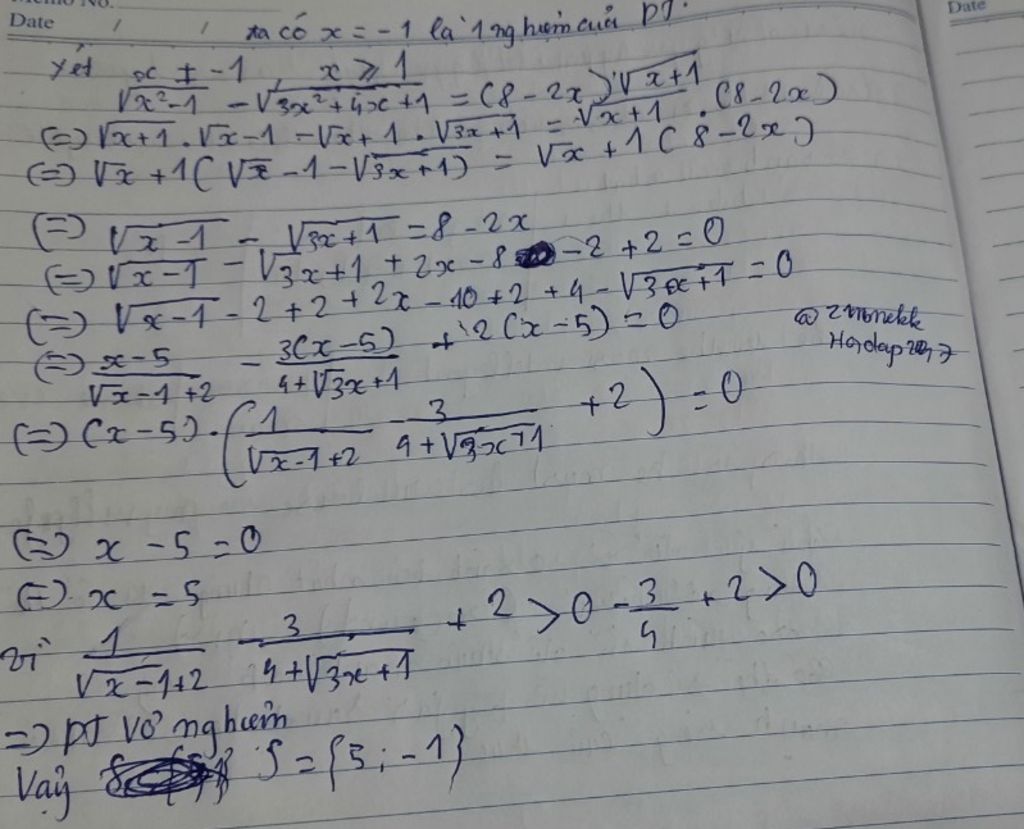 Memo No.
Date / /
Date
ta có x = -1 là 1 nghiệm của PT.
Xét x ≠ -1, x ⩾ 1
√(x²-1) - √(3x²+4x+1) = (8-2x)√(x+1)
(=) √(x+1) . √(x-1) - √(x+1) . √(3x+1) = √(x+1) . (8-2x)
(=) √x+1 (√x-1 - √(3x+1)) = √x+1 (8-2x)
(=) √(x-1) - √(3x+1) = 8-2x
(=) √(x-1) - √(3x+1) + 2x - 8 - 2 + 2 = 0
(=) √(x-1) - 2 + 2 + 2x - 10 + 2 + 4 - √(3x+1) = 0
(=) (x-5)/(√(x-1)+2) - 3(x-5)/(4+√(3x+1)) + 2(x-5) = 0
(=) (x-5).(1/(√(x-1)+2) - 3/(4+√(3x+1)) + 2) = 0
(=) x - 5 = 0
(=) x = 5
vì 1/(√(x-1)+2) - 3/(4+√(3x+1)) + 2 > 0 - 3/4 + 2 > 0
=> PT vô nghiệm
Vậy S = {5; -1}